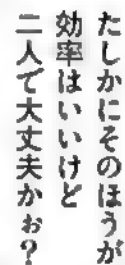 たしかにそのほうが
効率はいいけど
二人で大丈夫かぉ？